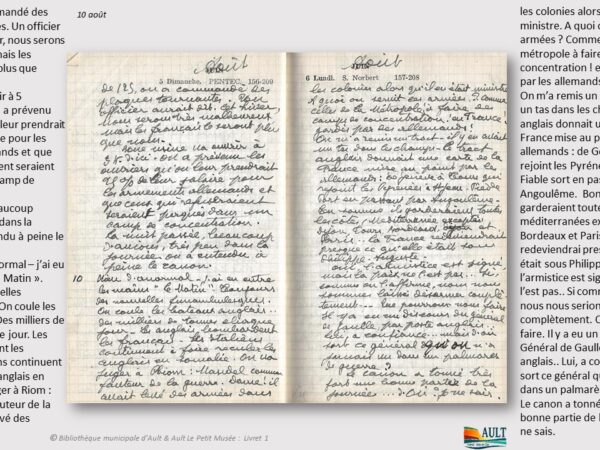 mandé des
es. Un officier
r, nous serons
mais les
plus que
ir à 5
a prévenu
leur prendrait
e pour les
ands et que
ent seraient
amp de
aucoup
dans la
ndu à peine le
ormal – j'ai eu
Matin ».
elles
On coule les
Des milliers de
e jour. Les
nt les
ns continuent
anglais en
ger à Riom :
uteur de la
vé des
10 août
Août
5 Dimanche. PENTEC. 156-209
de 125, on a commandé des
plaques tournantes. Un
officier aurait dit : cet hiver,
nous serons très malheureux
mais les français le seront plus
que nous.
usine va ouvrir à
5 K. d'ici - on a prévenu les
ouvriers qu'on leur prendrait
% de leur salaire pour
les armements allemands et
que ceux qui refuseraient
seraient dans un
camp de concentration.
nuit beaucoup
d'avions, très peu dans la
journée on a entendu à
peine le canon.
10 d'anormal - j'ai eu entre
les mains "le Matin" toujours
des nouvelles funambulesques.
On coule les bateaux anglais
des milliers de tonnes chaque
jour - les anglais bombardent
les français. les Italiens
continuent à faire reculer les
anglais en Somalie. On va
juger à Riom : Mandel comme
fauteur de la guerre. Dame ! il
avait levé des armées dans
Août
6 Lundi. S. Norbert 157-208
les colonies alors qu'il en était ministre
A quoi on servit ces armées ? Comme
celles de la Métropole, à faire des
camps de concentration, en France !
gardés par des allemands !
On m'a remis un tract - il y en avait
un tas dans les champs - le tract
anglais donnait une carte de la
France mise au point par les
allemands : de Genève à Tours qui
rejoint les Pyrénées à
sort en passant par Angoulême.
En somme ils garderaient toutes
les côtes, méditerranée exceptée
Dijon Tours Bordeaux et
Paris. La France redeviendrait
presque ce qu'elle était sous
Philippe-Auguste.
ou l'armistice est signé
ou il ne l'est pas. Si
comme on l'affirme, nous nous
sommes laissé désarmer complè
tement. Que pourrons nous faire
Il y a eu un discours du général
de Gaulle par poste anglais
lui, a confiance - mais d'où
sort ce général qu'on n'a
jamais vu dans un palmarès
de guerre ?
Le canon a tonné très
fort une bonne partie de la
journée... d'où ? je ne sais.
les colonies alors
ministre. A quoi o
armées ? Comme
métropole à faire
concentration ! e
par les allemands
On m'a remis un
un tas dans les ch
anglais donnait u
France mise au p
allemands : de Ge
rejoint les Pyréné
Fiable sort en pas
Angoulême. Bon
garderaient toute
méditerranées ex
Bordeaux et Paris
redeviendrai pres
était sous Philipp
l'armistice est sig
l'est pas.. Si comm
nous nous serion
complètement. C
faire. Il y a eu un
Général de Gaulle
anglais.. Lui, a co
sort ce général qu
dans un palmarè
Le canon a tonné
bonne partie de l
ne sais.
© Bibliothèque municipale d'Ault & Ault Le Petit Musée : Livret 1
AULT